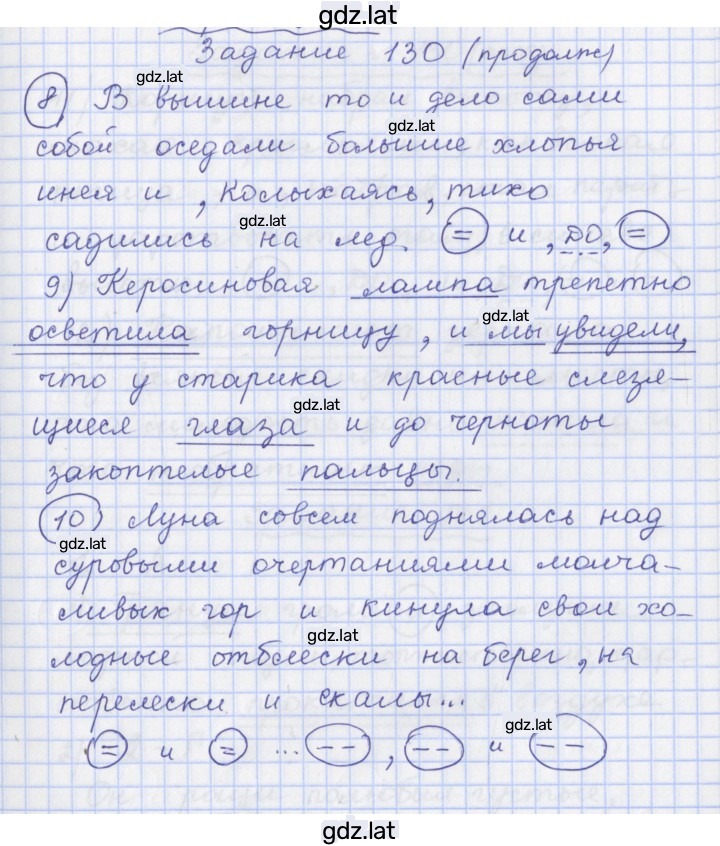 gdz.lat
Задание 130 (продолж)
gdz.lat
8) В вышине то и дело сами
gdz.lat
собой оседали большие хлопья
инея и , колыхаясь, тихо
gdz.lat
садились на лед. = и , ДО, =
9) Керосиновая лампа трепетно
gdz.lat
осветила горницу, и мы увидели,
что у старика красные слезя-
gdz.lat
щиеся глаза и до черноты
закоптелые пальцы.
10) Луна совсем поднялась над
gdz.lat
суровыми очертаниями молча-
ливых гор и кинула свои хо-
gdz.lat
лодные отблески на берег, на
перелески и скалы...
gdz.lat
= и = ... -- , -- и --
gdz.lat